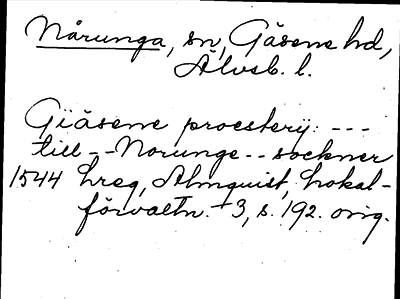 Nårunga, sn, Gäsene hd,
Älvsb. l.
Giäsene proesterij: ---
till -- Norunge -- sockner
1544 hreg, Almquist, Lokal-
förvaltn. 3, s. 192. orig.